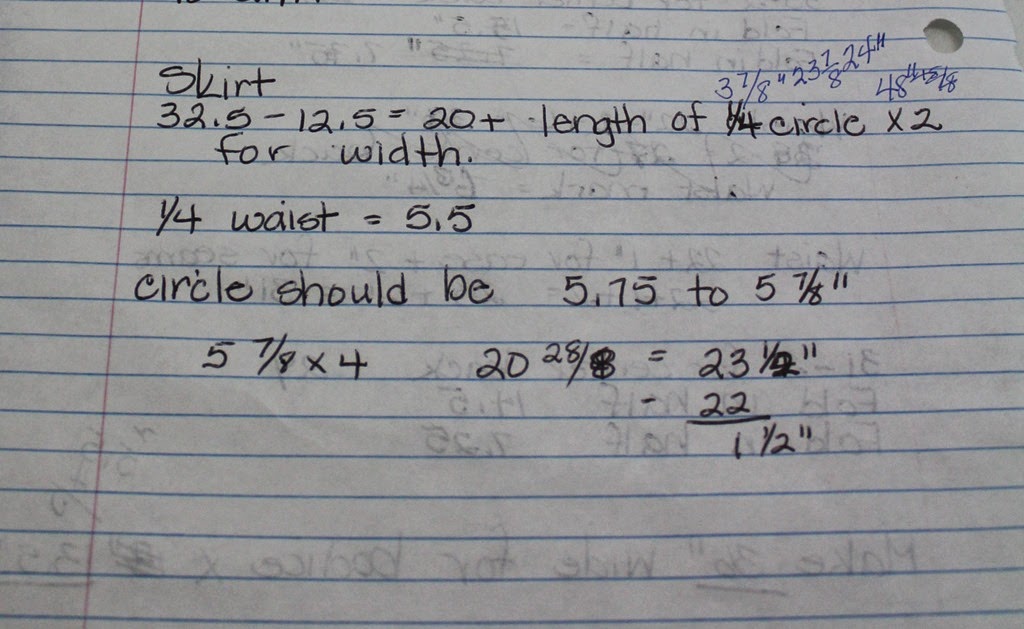 Skirt
3 7/8" 23 7/8 24" 48"
32.5 - 12.5 = 20 + length of 1/4 circle x 2
for width.
1/4 waist = 5.5
circle should be 5.75 to 5 7/8"
5 7/8 x 4 20 28/8 = 23 1/2"
- 22
1 1/2"